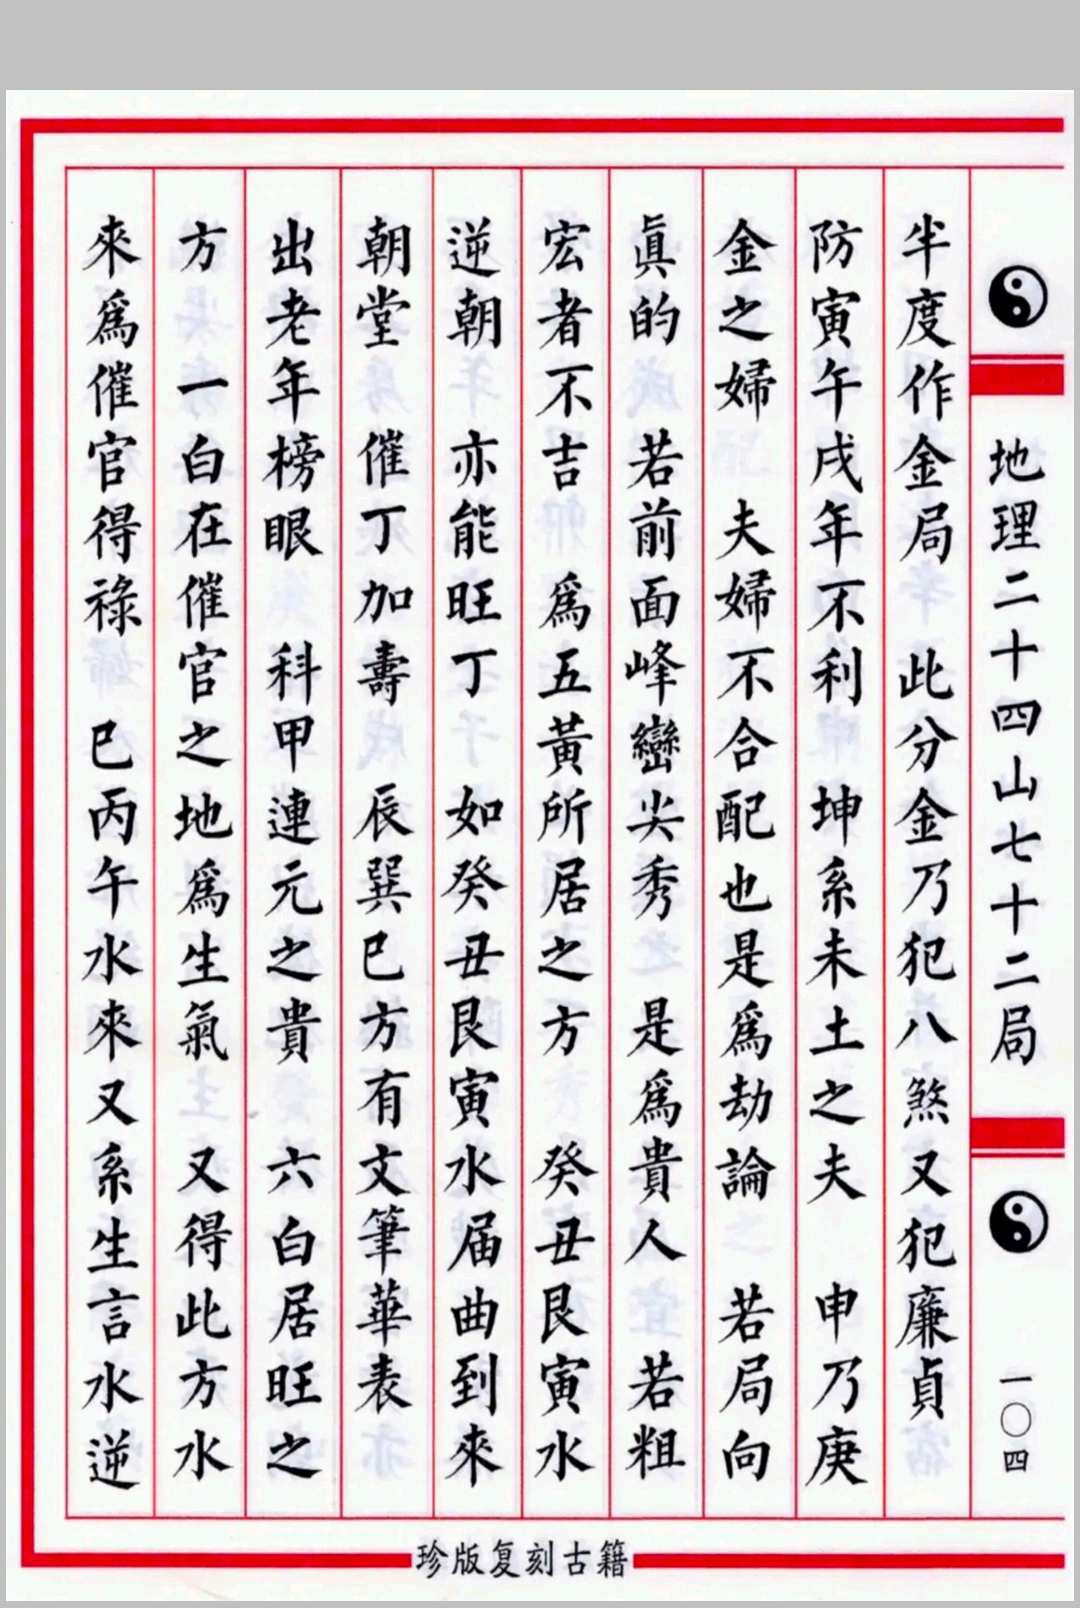 地理二十四山七十二局
一〇四
半度作金局　此分金乃犯八煞又犯廉貞
防寅午戌年不利　坤系未土之夫　申乃庚
金之婦　夫婦不合配也是爲劫論　若局向
眞的　若前面峰巒尖秀　是爲貴人　若粗
宏者不吉　爲五黃所居之方　癸丑艮寅水
逆朝　亦能旺丁　如癸丑艮寅水届曲到來
朝堂　催丁加壽　辰巽巳方有文筆華表
出老年榜眼　科甲連元之貴　六白居旺之
方　一白在催官之地爲生氣　又得此方水
來爲催官得祿　巳丙午水來又系生言水逆
珍版复刻古籍